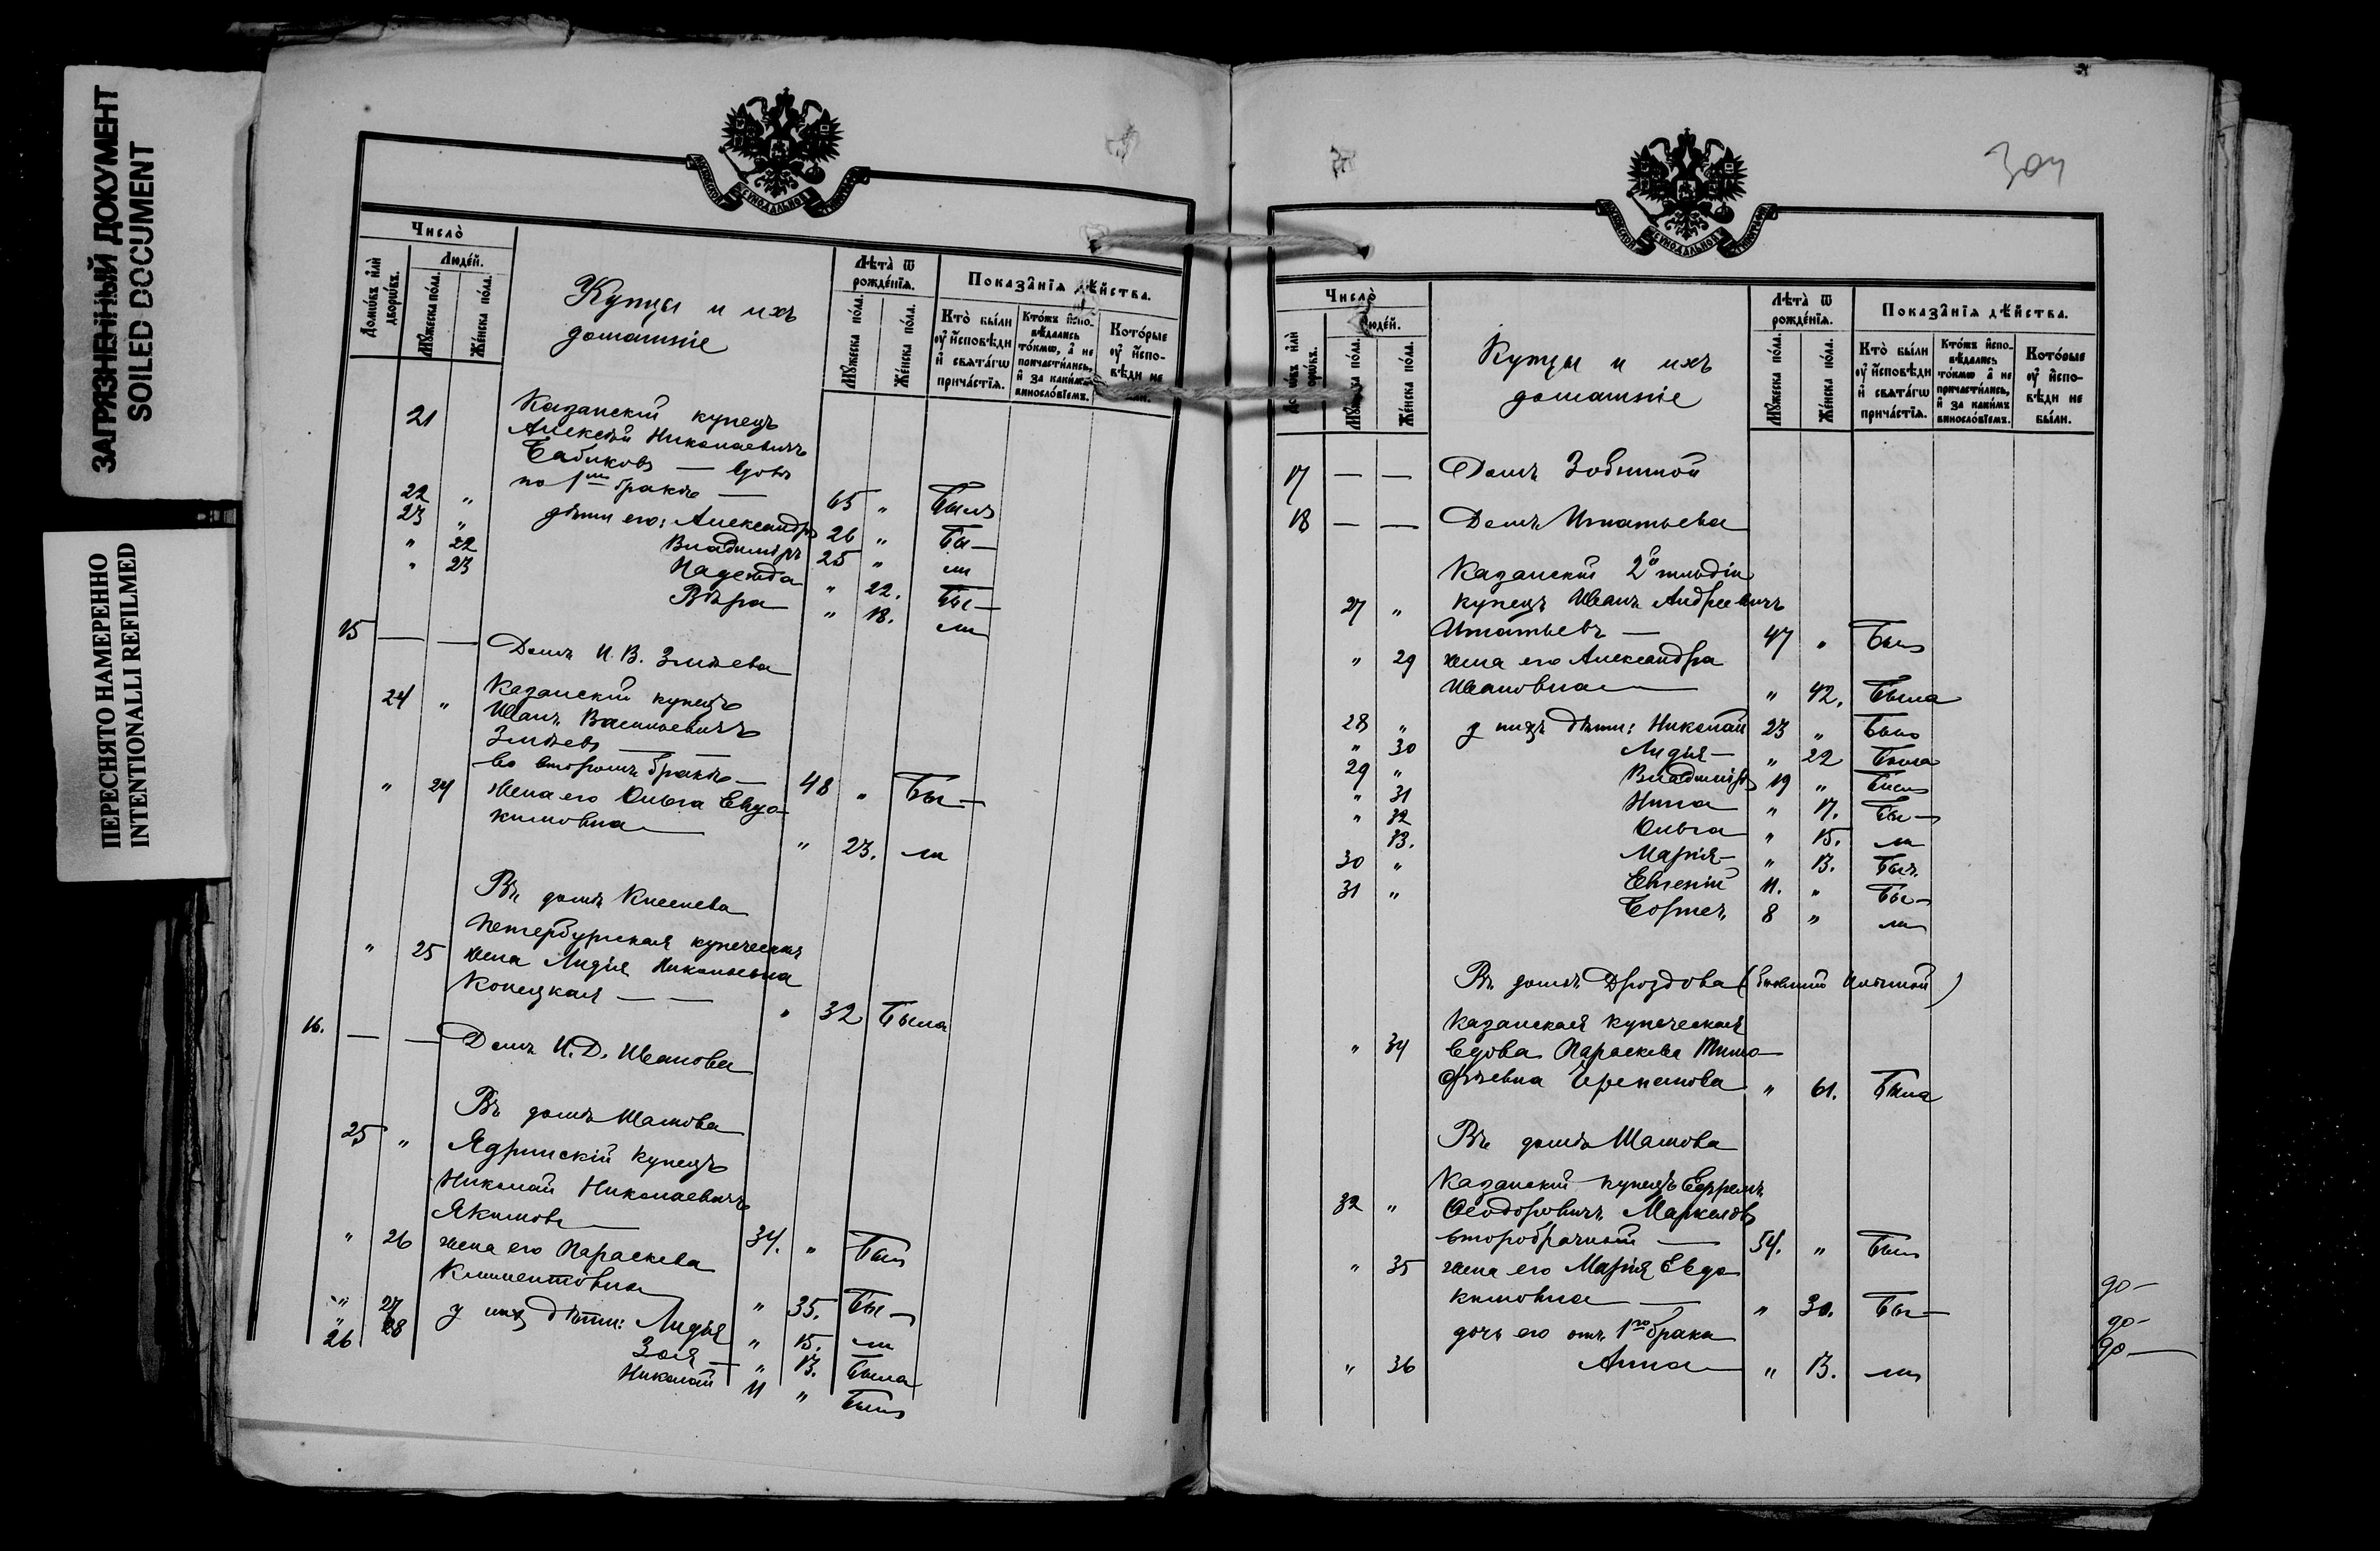 ЗАГРЯЗНЕННЫЙ ДОКУМЕНТ
SOILED DOCUMENT
ПЕРЕСНЯТО НАМЕРЕННО
INTENTIONALLI REFILMED
Число̀
Домѡ́въ и҆лѝ дворѡ́въ.
Люде́й.
Мꙋ́жеска по́ла.
Же́нска по́ла.
Купцы и ихъ
домашніе
Лѣта̀ ѿ
рожде́нїѧ.
Мꙋ́жеска по́ла.
Же́нска по́ла.
Показа̑нїѧ дѣ́йства.
Кто̀ бы́ли
ᲂу҆ и҆сповѣ́ди
и҆ свѧта́гѡ
прича́стїѧ.
Кто́жъ и҆спо-
вѣ́дались
то́кмѡ, а҆ не
причасти́лись,
и҆ за каки́мъ
винослові́емъ.
Кото́рые
ᲂу҆ и҆спо-
вѣ́ди не
бы́ли.
21 Казанскій купецъ
Алексѣй Николаевичъ
Бабиковъ — вдовъ
по 1мъ бракѣ — 65 " Былъ
22 " дѣти его: Александръ 26 " Бы-
23 " Владиміръ 25 " ли
" 22 Надежда " 22. Бы-
" 23 Вѣра " 18. ли
15 — — Домъ И. В. Змѣева
24 " Казанскій купецъ
Иванъ Васильевичъ
Змѣевъ —
во второмъ бракѣ — 48 " Бы-
" 24 жена его Ольга Евдо-
кимовна " 23. ли
Въ домѣ Киселева
Петербургская купеческая
" 25 жена Лидія Николаевна
Конецкая — — " 32 Была
16. — — Домъ И. Д. Иванова
Въ домѣ Шамова
25 " Ядринскій купецъ
Николай Николаевичъ
Якимовъ 34. " Былъ
" 26 жена его Параскева
Климентовна " 35. Бы-
" 27 у нихъ дѣти: Лидія " 15. ли
" 28 Зоя — " 13. Была
26 Николай 11 " Былъ
304
Число̀
Люде́й.
Мꙋ́жеска по́ла.
Же́нска по́ла.
Купцы и ихъ
домашніе
Лѣта̀ ѿ
рожде́нїѧ.
Мꙋ́жеска по́ла.
Же́нска по́ла.
Показа̑нїѧ дѣ́йства.
Кто̀ бы́ли
ᲂу҆ и҆сповѣ́ди
и҆ свѧта́гѡ
прича́стїѧ.
Кто́жъ и҆спо-
вѣ́дались
то́кмѡ а҆ не
причасти́лись,
и҆ за каки́мъ
винослові́емъ.
Кото́рые
ᲂу҆ и҆спо-
вѣ́ди не
бы́ли.
17 — — Домъ
18 — — Домъ Игнатьева
Казанскій 2й гильдіи
27 " купецъ Иванъ Андреевичъ
Игнатьевъ — 47 " Былъ
" 29 жена его Александра
Ивановна " 42. Была
28 " у нихъ дѣти: Николай 23 " Былъ
" 30 Лидія — " 22 Была
29 " Владиміръ 19 " Былъ
" 31 Нина " 17. Бы-
" 32 Ольга " 15. ли
33. Марія — " 13. Была
30 " Евгеній 11. " Бы-
31 " Борисъ 8 " ли
Въ домѣ Дроздова (бывшій )
Казанская купеческая
" 34 вдова Параскева Тимо-
фѣевна " 61. Была
Въ домѣ Шамова
Казанскій купецъ Ефремъ
32 " Ѳеодоровичъ Маркеловъ
второбрачный — 54. " Былъ
" 35 жена его Марія Евдо
кимовна — " 30. Бы-
дочь его отъ 1го брака
" 36 Анна " 13. ли
до-
до-
до-